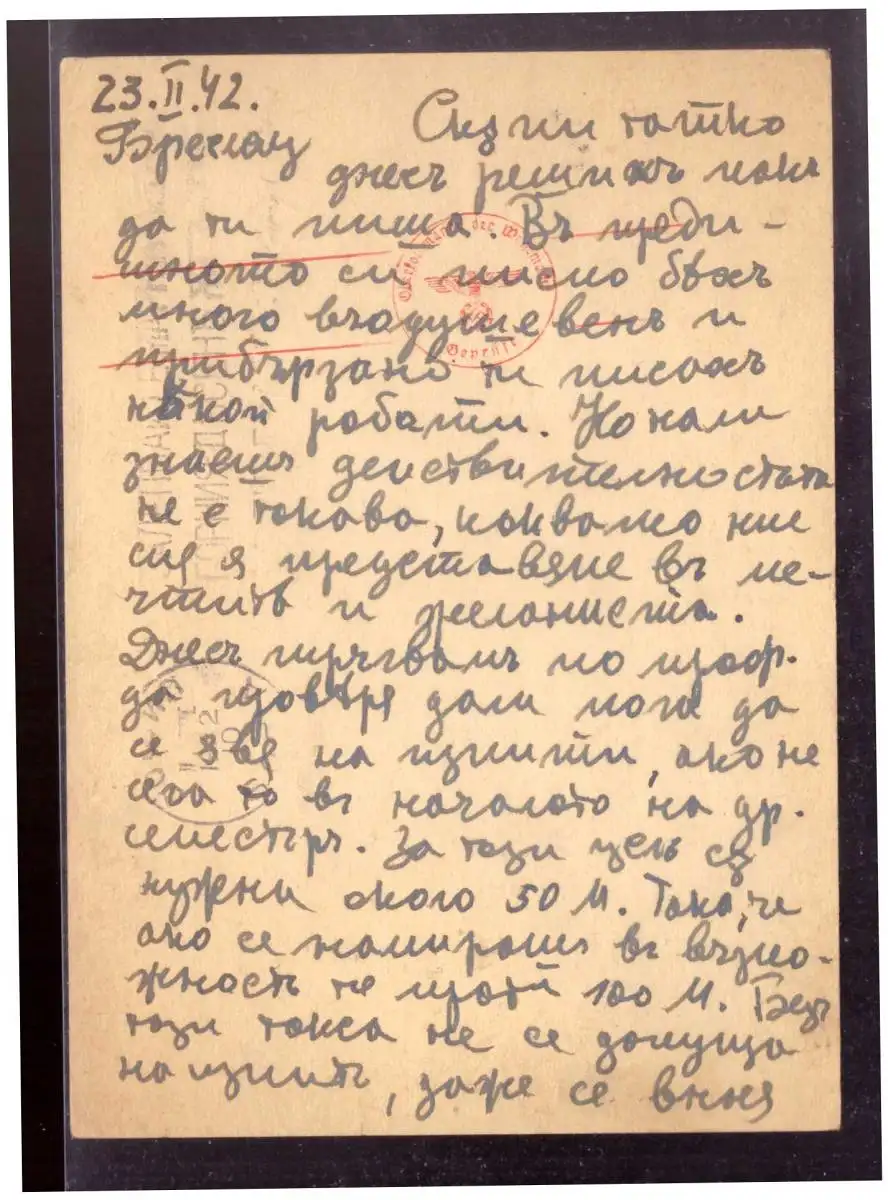 23.II.42.
Бреслау Скъпи татко
днесъ решихъ пакъ
да ти пиша. Въ преди-
шното си писмо бѣхъ
много въодушевенъ и
прибързано ти писахъ
нѣкой работи. Но нали
знаешъ действителностьта
не е такава, каквато ние
си я представяме въ ме-
чтитѣ и желанията.
Днесъ тръгвамъ по проф.
да провѣря дали мога да
се явя на изпити, ако не
сега то въ началото на др.
семестъръ. За тази цель сѫ
нужни около 50 М. Така, че
ако се намирашъ въ възмо-
жность ме прати 100 М. Безъ
тази такса не се допуща
на изпитъ, даже се внися
Oberkommando der Wehrmacht
Geprüft